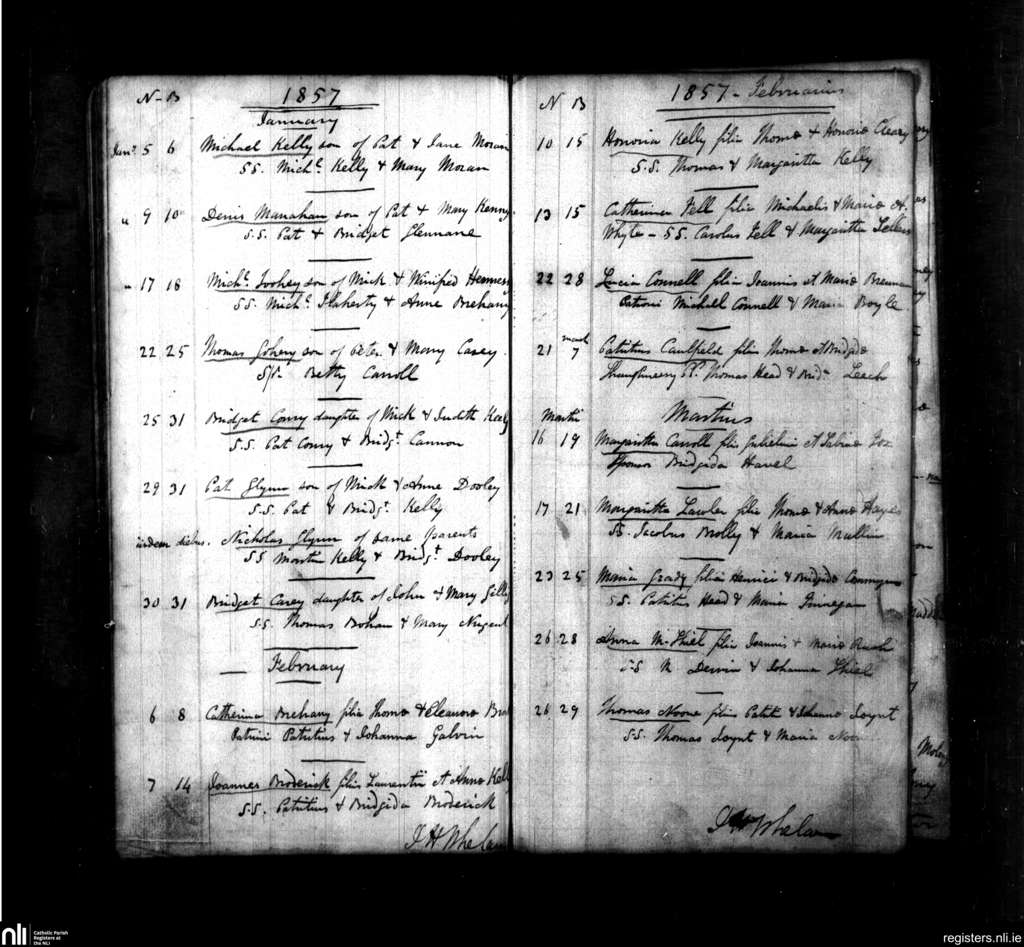 N - B
1857
January
Jany. 5 6 Michael Kelly son of Pat & Jane Moran
S.S. Michl. Kelly & Mary Moran
" 9 10 Denis Manahan son of Pat & Mary Kenny
S.S. Pat & Bridget Glennane
" 17 18 Michl. Toohey son of Mick & Winifred
S.S. Michl. Flaherty & Anne Brehany
22 25 Thomas Gohery son of Peter & Mary Casey
Betty Carroll
25 31 Bridget Conry daughter of Mick & Judith Healy
S.S. Pat Conry & Bridgt. Cannon
29 31 Pat Glynn son of Mick & Anne Dooley
S.S. Pat & Bridgt. Kelly
iisdem diebus. Nicholas Glynn of same parents
SS Kelly & Bridgt. Dooley
30 31 Bridget Carey daughter of John & Mary
S.S. Thomas Bohan & Mary Nugent
February
6 8 Catherina Brehany filia Thomæ & Eleanoræ
Patrini Patritius & Johanna Galvin
7 14 Joannes Broderick filius Laurentii et Annæ
S.S. Patritius & Bridgida Broderick
J H Whelan
N B
1857 - Februarius
10 15 Honoria Kelly filia Thomæ & Honoriæ Cleary
S.S. Thomas & Margaritta Kelly
13 15 Catherina Fell filia Michaelis & Mariæ A.
Whyte - SS Carolus Fell & Margaritta
22 28 Lucia Connell filia Joannis et Mariæ Brennan
Patrini Michael Connell & Maria Boyle
21 March 7 Patritius Caulfield filius Thomæ et Bridgidæ
Thomas Head & Bridt. Leech
Martii
Martius
16 19 Margaritta Carroll filia Gulielmi et Sabinæ Fox
Sponsor Bridgida Havel
17 21 Margaritta Lawler filia Thomæ & Annæ Hayes
SS. Jacobus Brolly & Maria Mullin
23 25 Maria Grady filia Henrici & Bridgidæ
S.S. Patritius Head & Maria Finnegan
26 28 Anna filia Joannis & Mariæ
S.S & Johanna
26 29 Thomas Noone filius Patritii & Johannæ Joynt
S.S. Thomas Joynt & Maria
J H Whelan
nli
Catholic Parish
Registers at
the NLI
registers.nli.ie